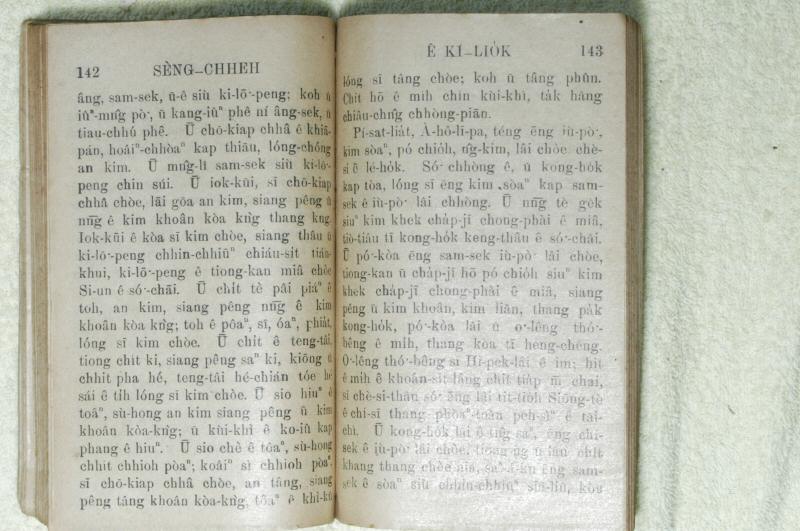 142 SÈNG-CHHEH
âng, sam-sek, ū-ê siù ki-lō͘-peng; koh ū
iûⁿ-mn̂g pò͘, ū kang-iûⁿ phê ní âng-sek, ū
tiau-chhú phê. Ū chō-kiap chhâ ê khiā-
pán, hoâiⁿ-chhòaⁿ kap thiāu, lóng-chóng
an kim. Ū mn̂g-lî sam-sek siù ki-lō͘-
peng chin súi. Ū iok-kūi, sī chō-kiap
chhâ chòe, lāi gōa an kim, siang pêng ū
nn̄g ê kim khoân kòa kǹg thang kng.
Iok-kūi ê kòa sī kim chòe, siang thâu ū
ki-lō͘-peng chhin-chhiūⁿ chiáu-sit tián-
khui, ki-lō͘-peng ê tiong-kan miâ chòe
Si-un ê só͘-chāi. Ū chit tè pâi piáⁿ ê
toh, an kim, siang pêng nn̄g ê kim
khoân kòa kǹg; toh ê pôaⁿ, sî, óaⁿ, phiát,
lóng sī kim chòe. Ū chit ê teng-tâi,
tiong chit ki, siang pêng saⁿ ki, kiōng ū
chhit pha hé, teng-tâi hé-chián tóe hé
sái ê tih lóng sī kim chòe. Ū sio hiuⁿ ê
toâⁿ, sù-hong an kim siang pêng ū kim
khoân kòa-kǹg; ū kùi-khì ê ko-iû kap
phang ê hiuⁿ. Ū sio chè ê tôaⁿ, sù-hong
chhit chhioh pòaⁿ; koâiⁿ sì chhioh pòaⁿ,
sī chō-kiap chhâ chòe, an tâng, siang
pêng tâng khoân kòa-kǹg, tôaⁿ ê khì-kū
Ê KÌ-LIO̍K 143
lóng sī tâng chòe; koh ū tâng phûn.
Chit hō ê mih chin kùi-khì, ta̍k hāng
chiàu-chn̂g chhòng-piān.
Pí-sat-lia̍t, À-hô-lī-pa, téng ēng iù-pò͘,
kim sòaⁿ, pó chio̍h, n̂g-kim, lâi chòe chè-
si ê lé-ho̍k. Só͘ chhòng ê, ū kong-ho̍k
kap tòa, lóng sī ēng kim sòaⁿ kap sam-
sek ê iù-pò͘ lâi chhòng. Ū nn̄g tè ge̍k
siuⁿ kim khek cha̍p-jī chong-phài ê miâ,
tiò-tiâu tī kong-ho̍k keng-thâu ê só͘-chāi.
Ū pó͘-kòa ēng sam-sek iù-pò͘ lâi chòe,
tiong-kan ū cha̍p-jī hō pó chio̍h siuⁿ kim
khek cha̍p-jī chong-phài ê miâ, siang
pêng ū kim khoân, kim liân, thang pa̍k
kong-ho̍k, pó͘-kòa lāi ū o͘-lêng thó͘-
bêng ê mih, thang kòa tī heng-chêng.
O͘-lêng thó͘-bêng sī Hi-pek-lâi ê im; hit
ê mih ê khoán-sit lâng chit tia̍p m̄ chai,
sī chè-si-thâu só͘ ēng lâi tit-tio̍h Siōng-tè
ê chí-sī thang phòaⁿ-toàn peh-sìⁿ ê tāi-
chì. Ū kong-ho̍k lāi ê tn̂g saⁿ, ēng chí-
sek ê iù-pò͘ lâi chòe, tiong ng ū lâu chi̍t
khang thang chòe niá, saⁿ-á-ku ēng sam-
sek ê sòaⁿ siù chhin-chhiūⁿ siā-liû, kòa